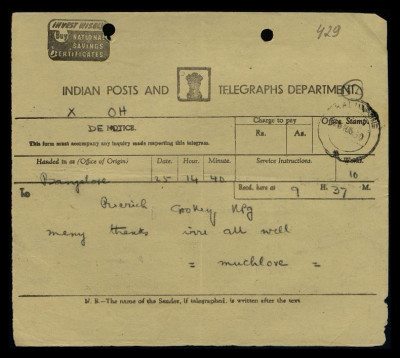 INVEST WISELY
Buy NATIONAL
SAVINGS
CERTIFICATES
429
INDIAN POSTS AND TELEGRAPHS DEPARTMENT.
X OH
DE NOTICE.
This form must accompany any inquiry made respecting this telegram.
Charge to pay
Rs. As.
Office Stamp.
Handed in at (Office of Origin). Date. Hour. Minute. Service Instructions. Words.
Bangalore 25 14 40 10
Recd. here at 9 H. 37 M.
To
Cooney Npg
many thanks all well
= muchlove =
N. B.—The name of the Sender, if telegraphed, is written after the text